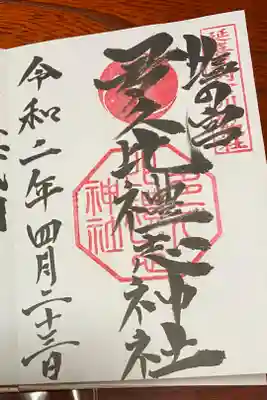 延喜式内社
塩の宮
多久比禮志神社
神社
令和二年四月二十三日